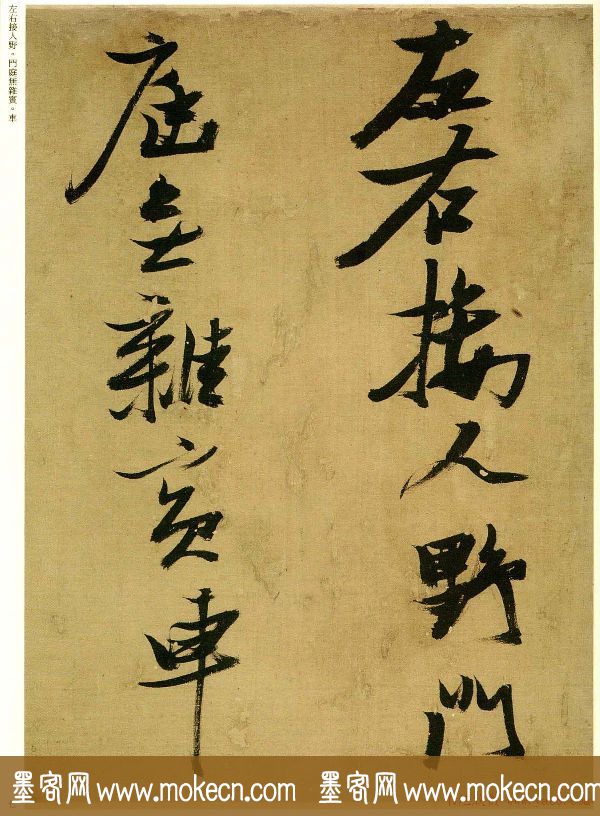 左右接人野門
庭無雜賓車
左右接人野。門庭無雜賓。車
墨客网 www.mokecn.com 墨客网 www.mokecn.com